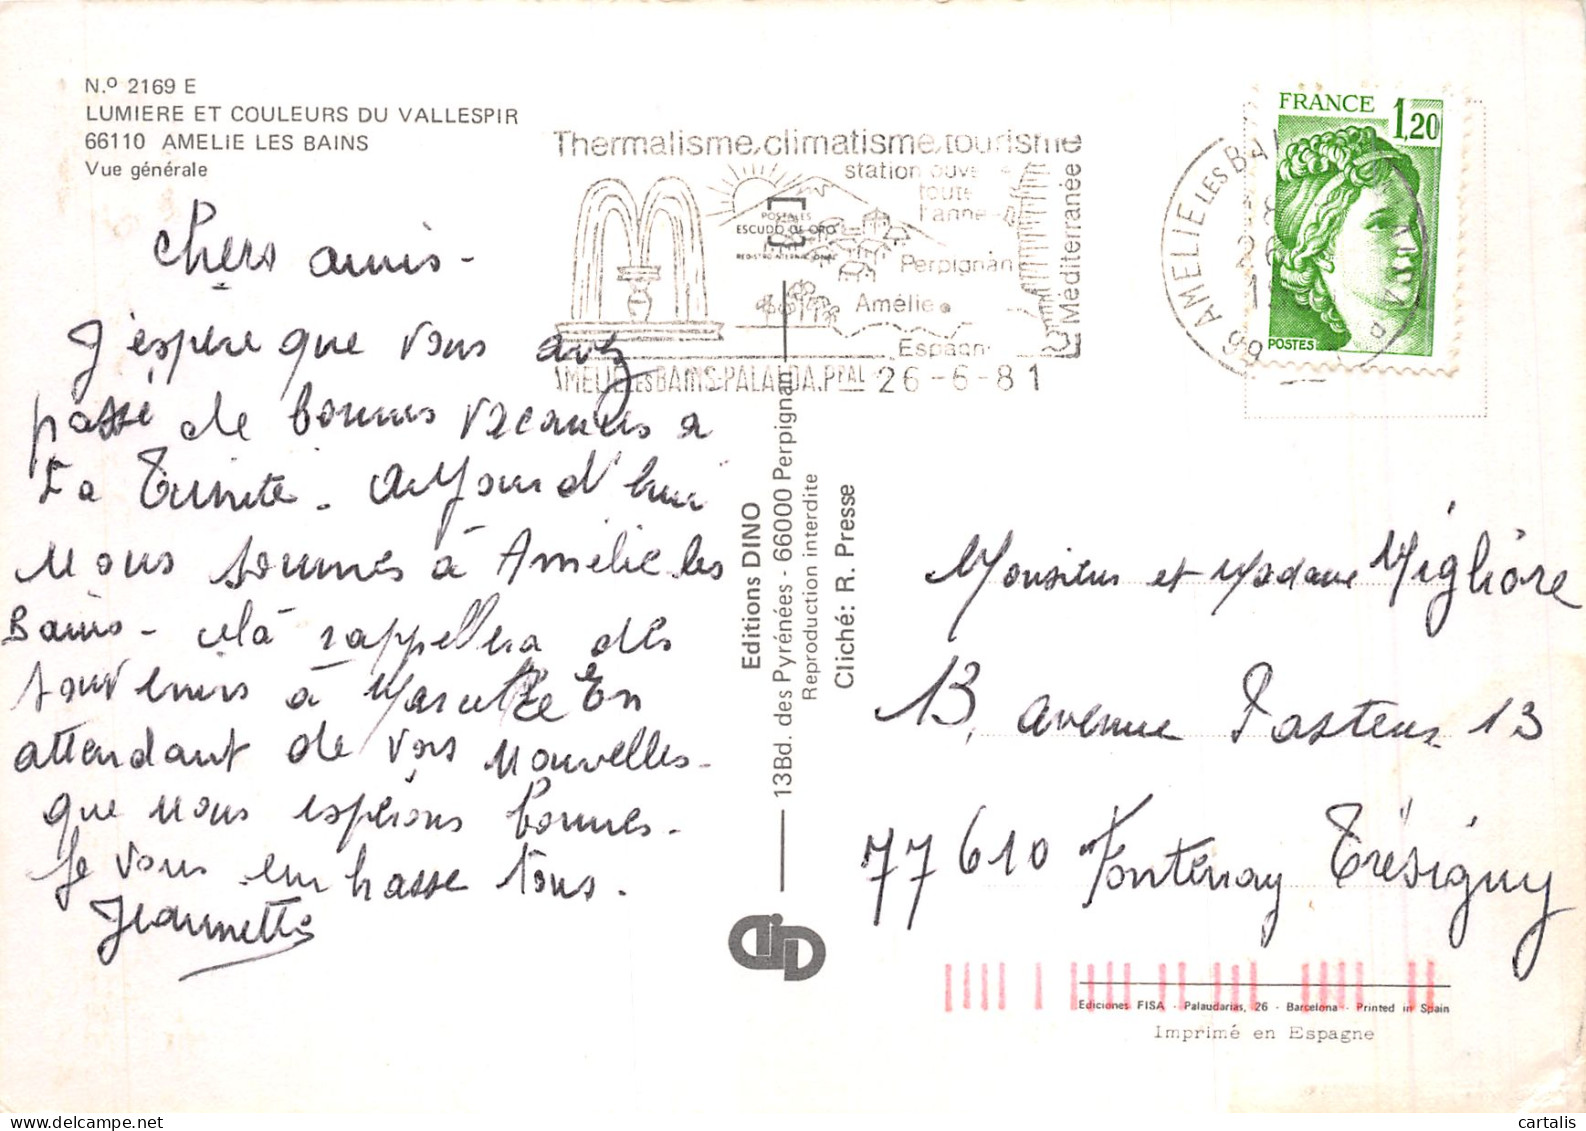 N.º 2169 E
LUMIERE ET COULEURS DU VALLESPIR
66110 AMELIE LES BAINS
Vue générale
Chers amis -
J'espère que vous avez
passé de bonnes vacances a
La Trinité. Aujourd'hui
nous sommes à Amélie les
Bains - celà rappellera des
souvenirs à En
attendant de vos nouvelles -
que nous espérons bonnes -
Je vous embrasse tous.
Jeannette
Thermalisme, climatisme, tourisme
station ouve
toute
l'anne
Perpignan
Amélie
Espagn
Méditerranée
POSTALES
ESCUDO DE ORO
REGISTRO INTERNACIONAL
AMELIE LES BAINS-PALALDA.Pᴾᴬᴸ 26-6-81
Editions DINO
13Bd. des Pyrénées - 66000 Perpignan
Reproduction interdite
Cliché: R. Presse
FRANCE 1,20
POSTES
66 AMELIE LES BAI
Monsieur et Madame Migliore
13, avenue Pasteur 13
77610 Fontenay Trésigny
Ediciones FISA - Palaudarias, 26 - Barcelona - Printed in Spain
Imprimé en Espagne
cartalis